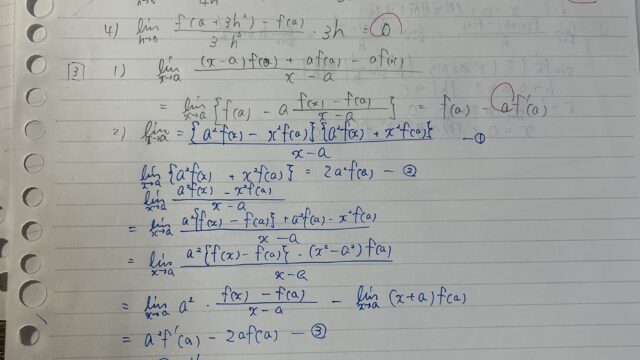 4) lim h→0 f(a+3h²) - f(a) / 3h² · 3h = 0
3 1) lim x→a (x-a)f(a) + af(a) - af(x) / x-a
= lim x→a {f(a) - a f(x) - f(a) / x-a} = f(a) - af'(a)
2) lim x→a = {a²f(x) - x²f(a)}{a²f(x) + x²f(a)} / x-a —①
lim x→a {a²f(x) + x²f(a)} = 2a²f(a) —②
lim x→a a²f(x) - x²f(a) / x-a
= lim x→a a²{f(x) - f(a)} + a²f(a) - x²f(a) / x-a
= lim x→a a²{f(x) - f(a)} · (x²-a²)f(a) / x-a
= lim x→a a² · f(x) - f(a) / x-a - lim x→a (x+a)f(a)
= a²f'(a) - 2af(a) —③